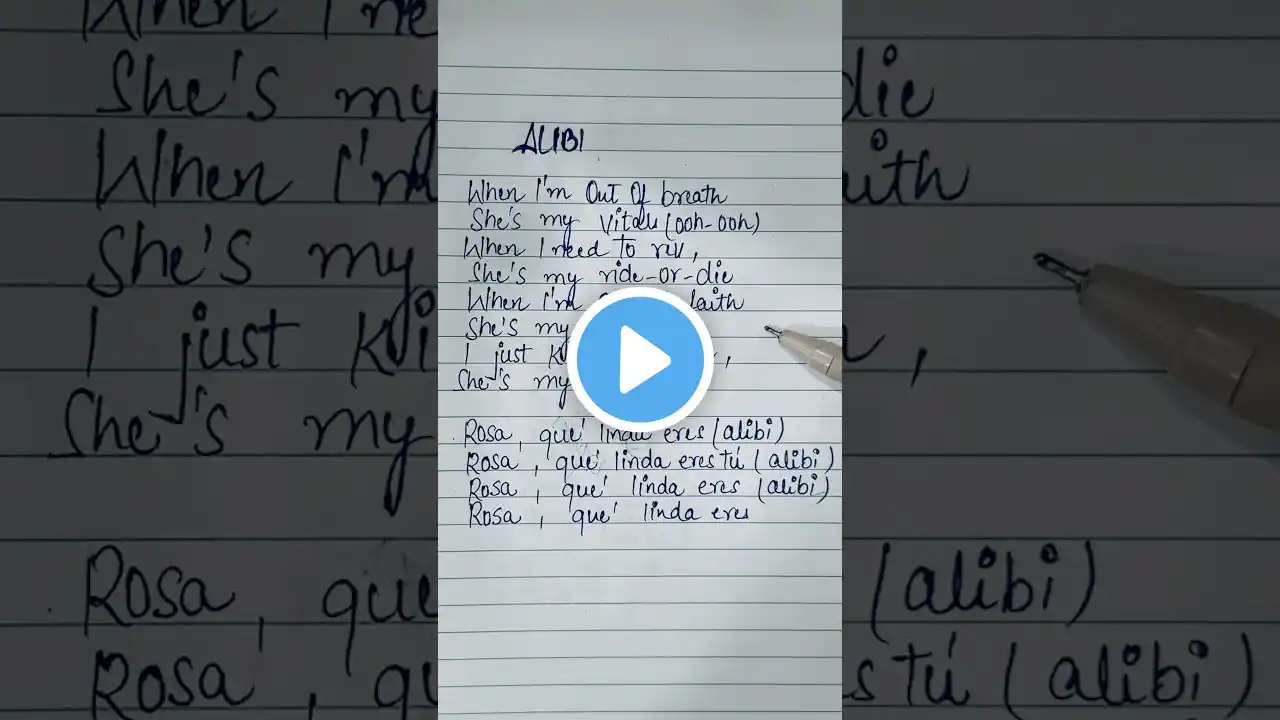 ALIBI
When I'm Out Of breath
She's my (ooh-ooh)
When I need to
She's my ride-or-die
When I'm
She's my
I just
She's my
Rosa, qué linda eres (alibi)
Rosa, qué linda eres tú (alibi)
Rosa, qué linda eres (alibi)
Rosa, qué linda eres